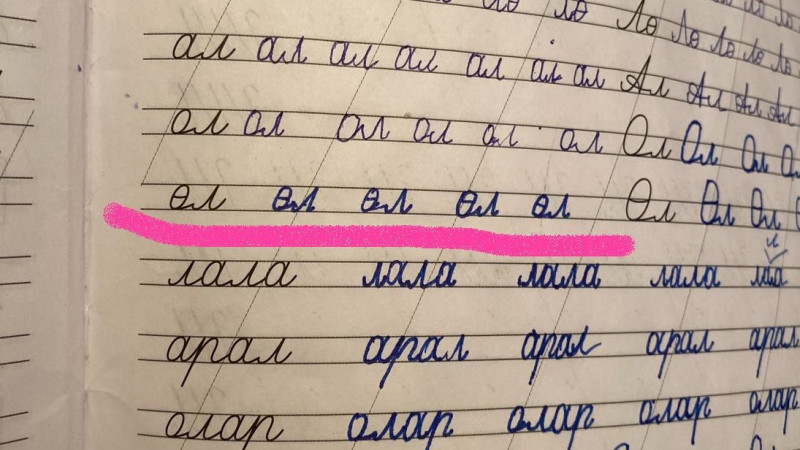 лө Лө Лө Лө Лө
ал ал ал ал ал ал ал Ал Ал Ал Ал
ол ол ол ол ол ол Ол Ол Ол
өл өл өл өл өл Өл Өл Өл
лала лала лала лала лала
арал арал арал арал арал
олар олар олар олар олар